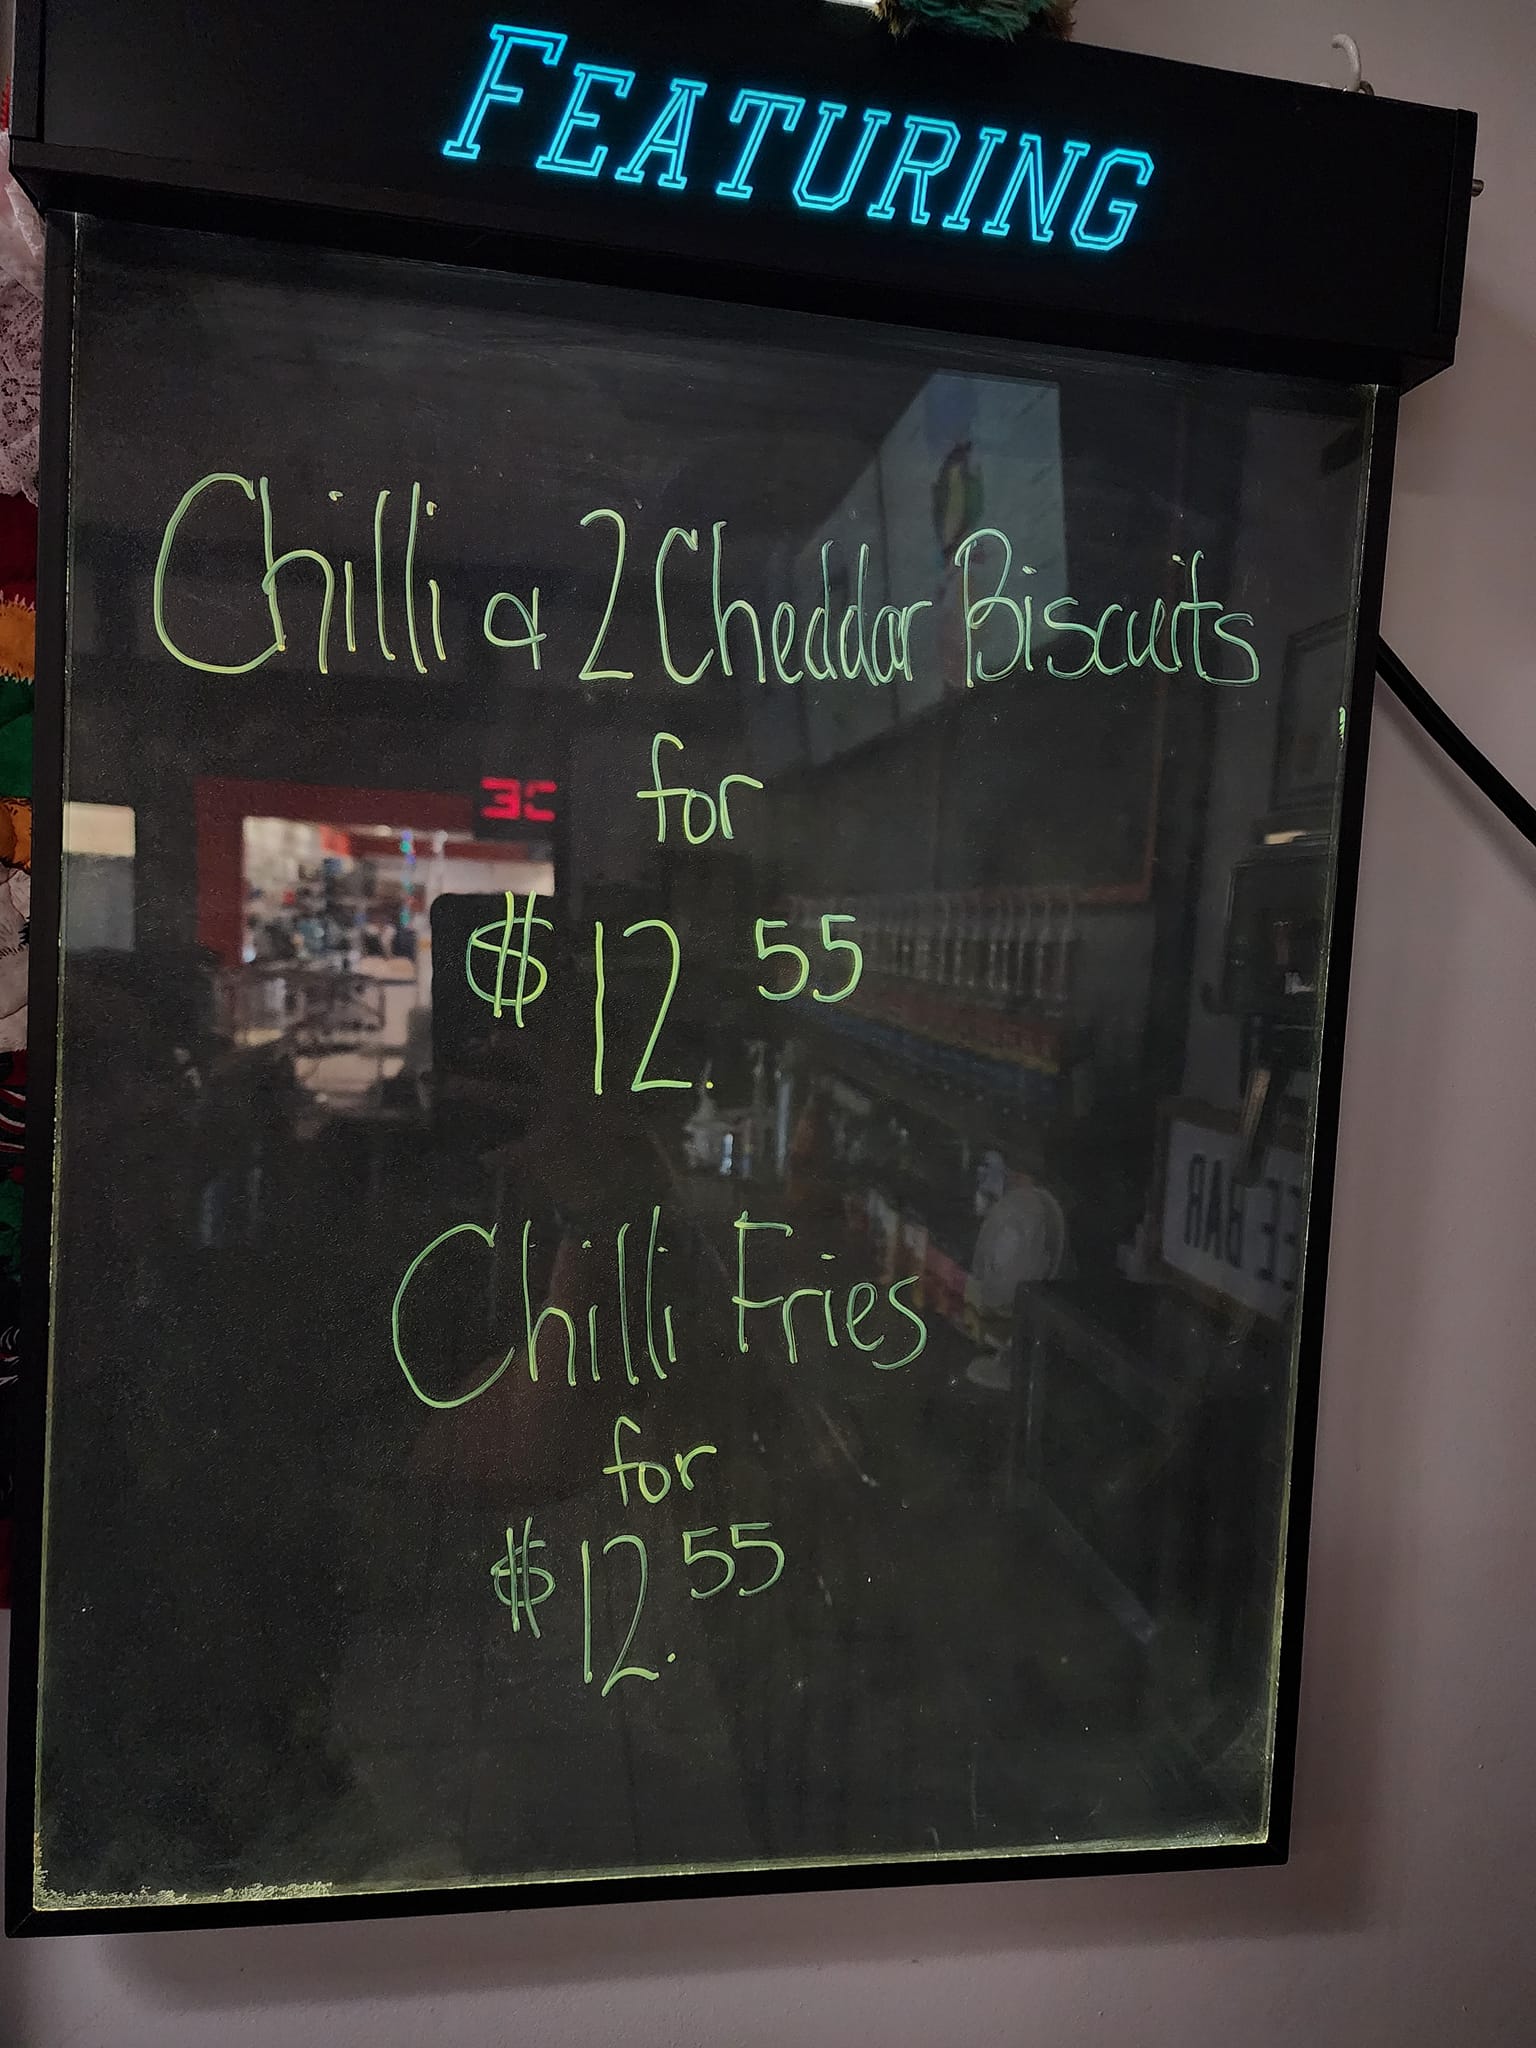 FEATURING
Chilli & 2 Cheddar Biscuits
for
$12.55
Chilli Fries
for
$12.55
BAR